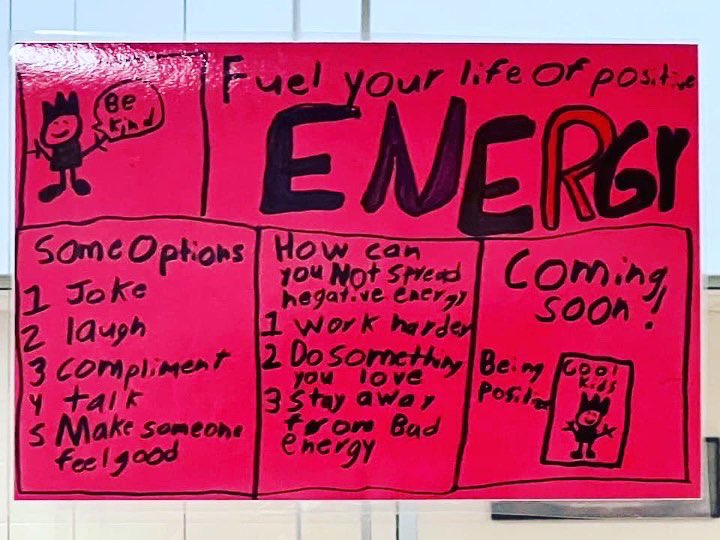 Be
Kind
Fuel your life of positive
ENERGY
Some Options
1 Joke
2 laugh
3 compliment
4 talk
5 Make someone
feel good
How can
you Not spread
negative energy
1 work harder
2 Do something
you love
3 stay away
from Bad
energy
Coming
soon!
Being
Positive
Cool
Kids